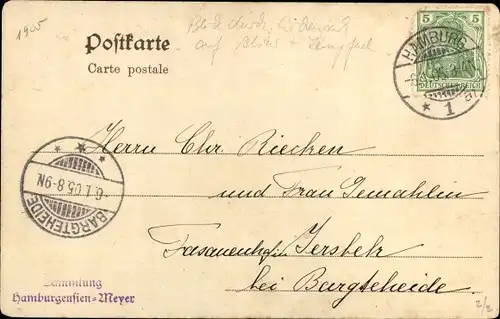 1905
Postkarte
Carte postale
auf
5 5
DEUTSCHES REICH
HAMBURG
* 1 a)
Herrn Chr Riecken
und Frau Gemahlin
Fasanenhof in Jersbek
bei Bargteheide
* * *
6.1.05.8-9N.
BARGTEHEIDE
Sammlung
Hamburgensien=Meyer
2/2